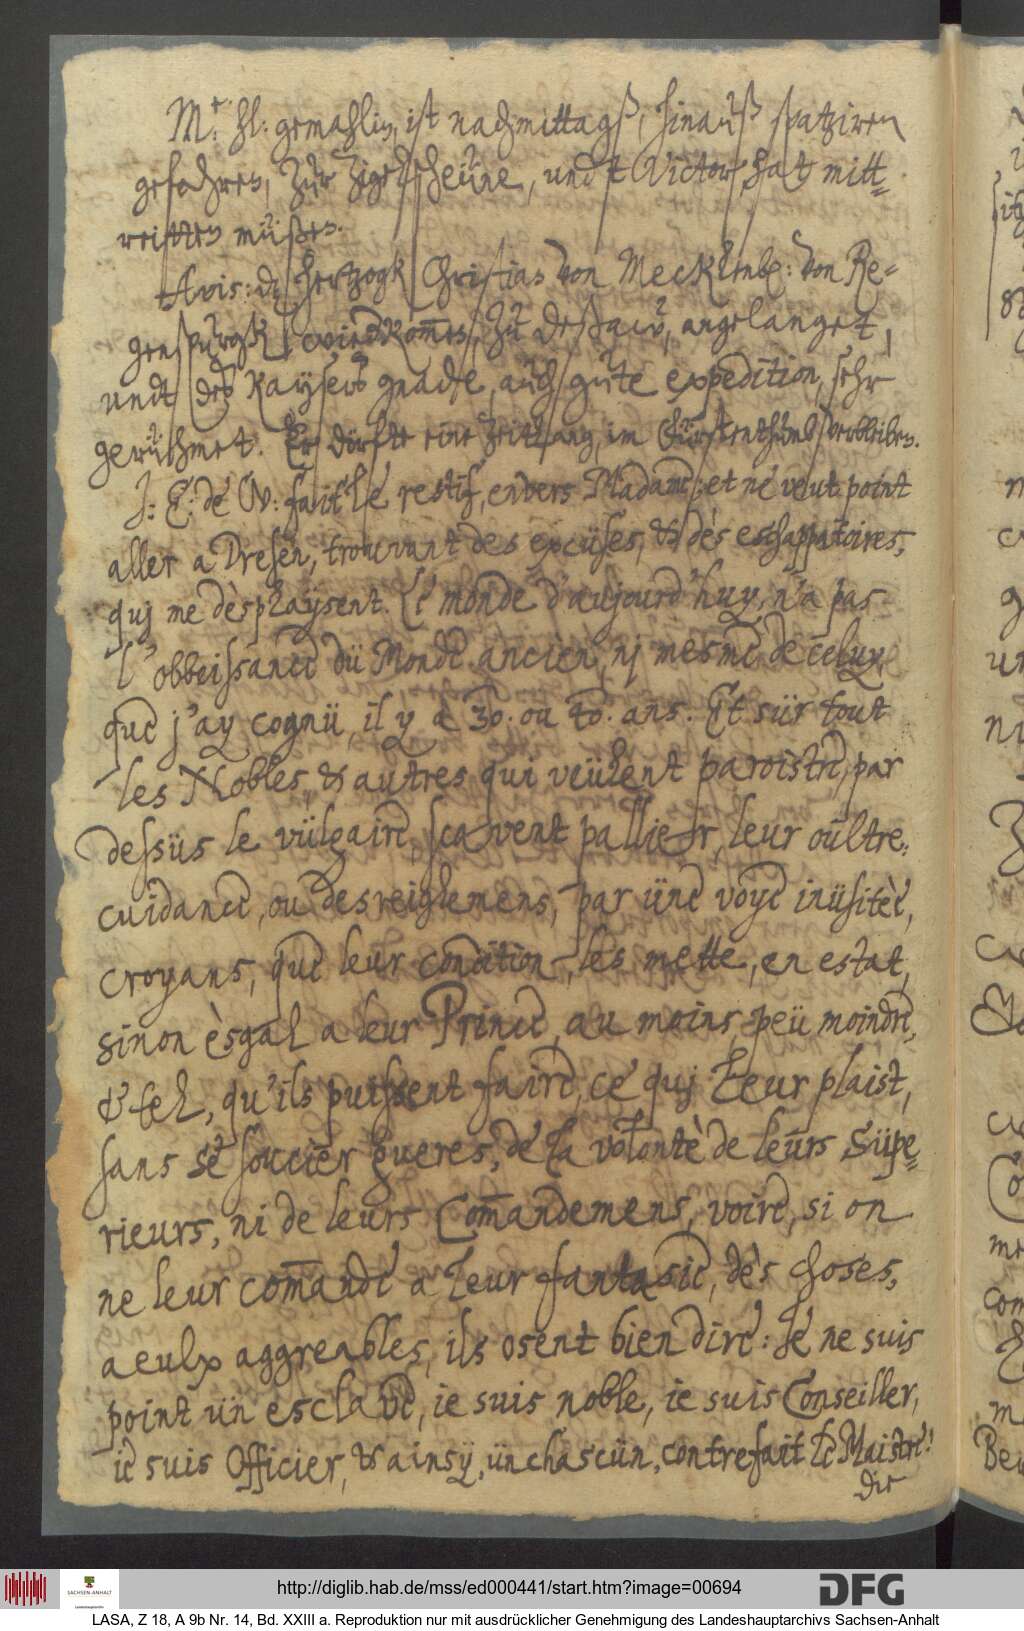 Mr: hl: gemahlin, ist nachmittagß, hinauß spatziren
gefahren, zur Zigelscheüne, undt Victor, hat mitt-
reitten müßen.
Avis: dz hertzogk Christian von Mecklenb: von Re-
genspurgk, wiederkom̅en, zu Deßaw, angelanget,
undt des Kaysers gnade, auch gute expedition, sehr
gerühmet. Er dörfte eine zeitlang, im Fürstenthumb verbleiben.
J: E: de N: fait le restif, envers Madame; et ne veut point
aller a Dresen, trouvant des excüses, & dès eschappatoires,
quj me dèsplaysent. Le monde d'aujourd'huy, n'a pas
l'obbeissance dü Monde ancien, nj mesme de celuy
que j'ay cognü, il y a 30. ou 40. ans. Et sür tout
les Nobles, & autres qui veülent paroistre, par
dessüs le vülgaire, scavent pallier, leur oultre-
cuidance, ou desreiglemens, par üne voye inüsitèe,
croyans, que leur condition, les mette, en estat,
sinon èsgal a leur Prince, au moins, peü moindre,
& tel, qu'ils puissent faire, ce quj leur plaist,
sans se soucier gueres, de la volontè de leurs Süpe-
rieurs, ni de leurs Com̅andemens, voire, si on
ne leur com̅ande a leur fantasie, dès choses,
a eulx aggreables, ils osent bien dire: Je ne suis
point ün esclave, ie suis noble, ie suis Conseiller,
ie suis Officier, & ainsy, ün chascün, contrefait le Maistre!
Die
http://diglib.hab.de/mss/ed000441/start.htm?image=00694
SACHSEN-ANHALT
DFG
LASA, Z 18, A 9b Nr. 14, Bd. XXIII a. Reproduktion nur mit ausdrücklicher Genehmigung des Landeshauptarchivs Sachsen-Anhalt